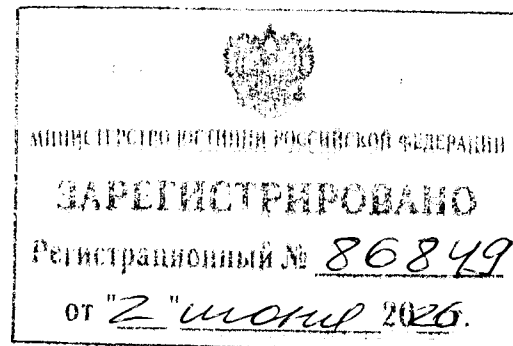 МИНИСТЕРСТВО ЮСТИЦИИ РОССИЙСКОЙ ФЕДЕРАЦИИ
ЗАРЕГИСТРИРОВАНО
Регистрационный № 86849
от "2" июня 2026.